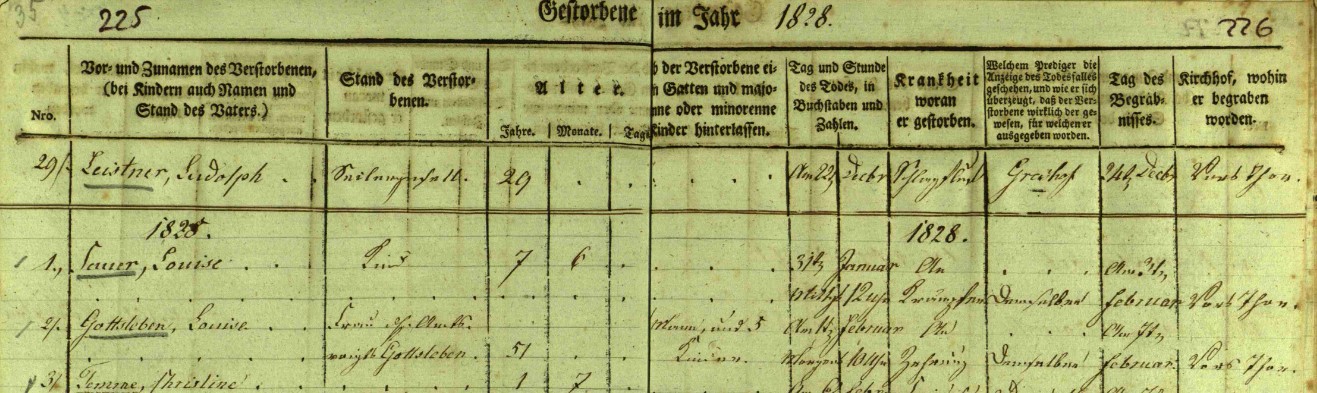 35
225
Gestorbene im Jahr 1828.
226
Nro.
Vor- und Zunamen des Verstorbenen,
(bei Kindern auch Namen und
Stand des Vaters.)
Stand des Verstor-
benen.
Alter.
Jahre. Monate. Tage
b der Verstorbene ei-
n Gatten und majo-
nne oder minorenne
Kinder hinterlassen.
Tag und Stunde
des Todes, in
Buchstaben und
Zahlen.
Krankheit
woran
er gestorben.
Welchem Prediger die
Anzeige des Todesfalles
geschehen, und wie er sich
überzeugt, daß der Ver-
storbene wirklich der ge-
wesen, für welchen er
ausgegeben worden.
Tag des
Begräb-
nisses.
Kirchhof, wohin
er begraben
worden.
29. Leistner, Ludolph 29 Am 22 Decbr Schlagfluß 24 Decbr Vors Thor.
1828. 1828.
1. Sauer, Louise Kind 7 6 31 Januar An Am 3t
12 Uhr Krämpfen Demselben Februar Vors Thor.
2. Gottsleben, Louise Frau d. Amts- Mann, und 5 Am Februar An Am 7t
voigts Gottsleben. 51 Kinder. Morgens 10 Uhr Zehrung Demselben Februar Vors Thor.
3. Temme, Christine 1 7 Am 6 Febr